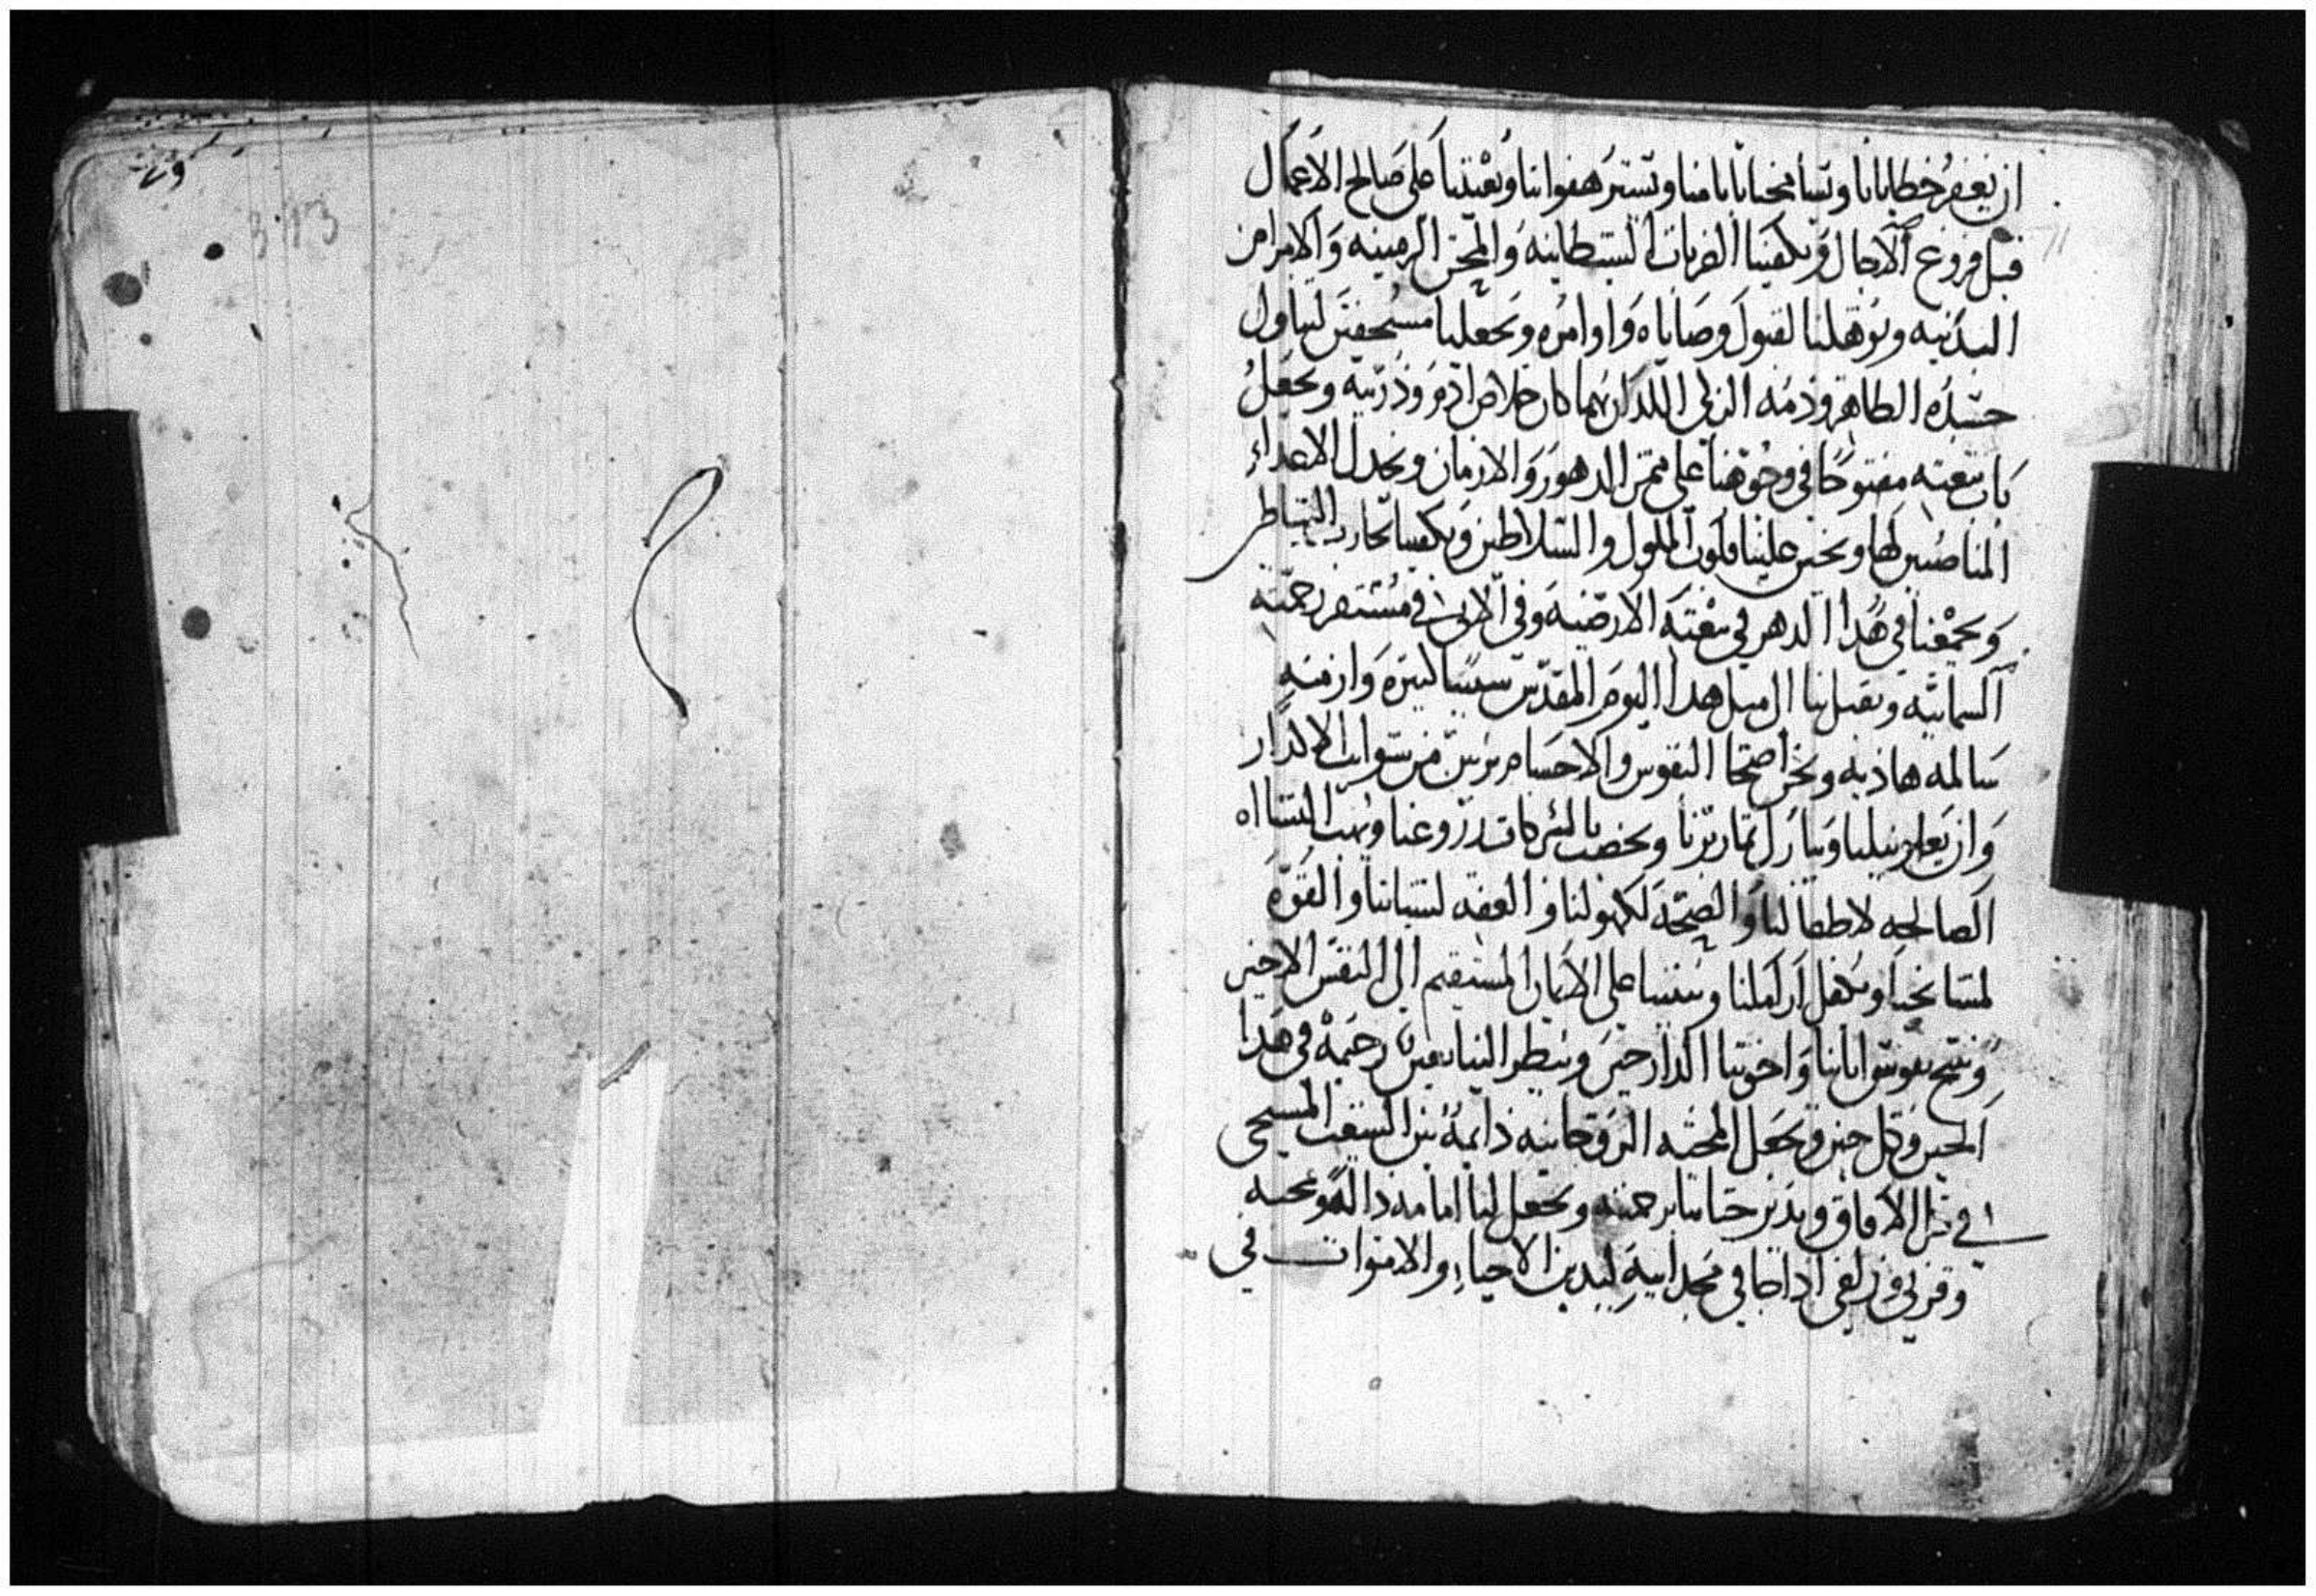 ان يغفر خطايانا ويسامحنا باثامنا ويستر هفواتنا ويعيننا على صالح الاعمال
قبل فروغ الاجال ويكفينا الضربات الشيطانيه والمحن الزمنيه والامراض
البدنيه ويؤهلنا لقبول وصاياه واوامره ويجعلنا مستحقين لتناول
جسده الطاهر ودمه الزكي اللدان بهما كان خلاص ادم وذريته ويجعل
باب بيعته مفتوحا في وجوهنا على ممر الدهور والازمان ويخدل الاعداء
المناصبين لها ويحنن علينا قلوب الملوك والسلاطين ويكفينا تجارب الشياطين
ويجمعنا في هدا الدهر في بيعته الارضيه وفي الاتي في مستقر رحمته
السمائيه ويقبل بنا الى مثل هدا اليوم المقدس سنينا كثيره وازمنه
سالمه هاديه ونحن اصحا النفوس والاجسام بريين من شوايب الاكدار
وان يعلي نيلنا ويبارك ثمارنا ويخصب بالبركات زروعنا ويهب النشااه
الصالحه لاطفالنا والصحه لكهولنا والعفه لشبابنا والقوه
لمشايخنا ويكفل اراملنا ويثبتنا على الامان المستقيم الى النفس الاخير
وينيح نفوس ابائنا واخوتنا الدارجين وينظر الينا بعين رحمه في هدا
الحين وكل حين ويجعل المحبه الروحانيه دايمه بين الشعب المسيحي
في كل الافاق ويدبر حياتنا برحمته ويجعل لنا امامه داله ومحبه
وقربى وزلفى اذا جا في مجد ابيه ليدين الاحياء والاموات في
313